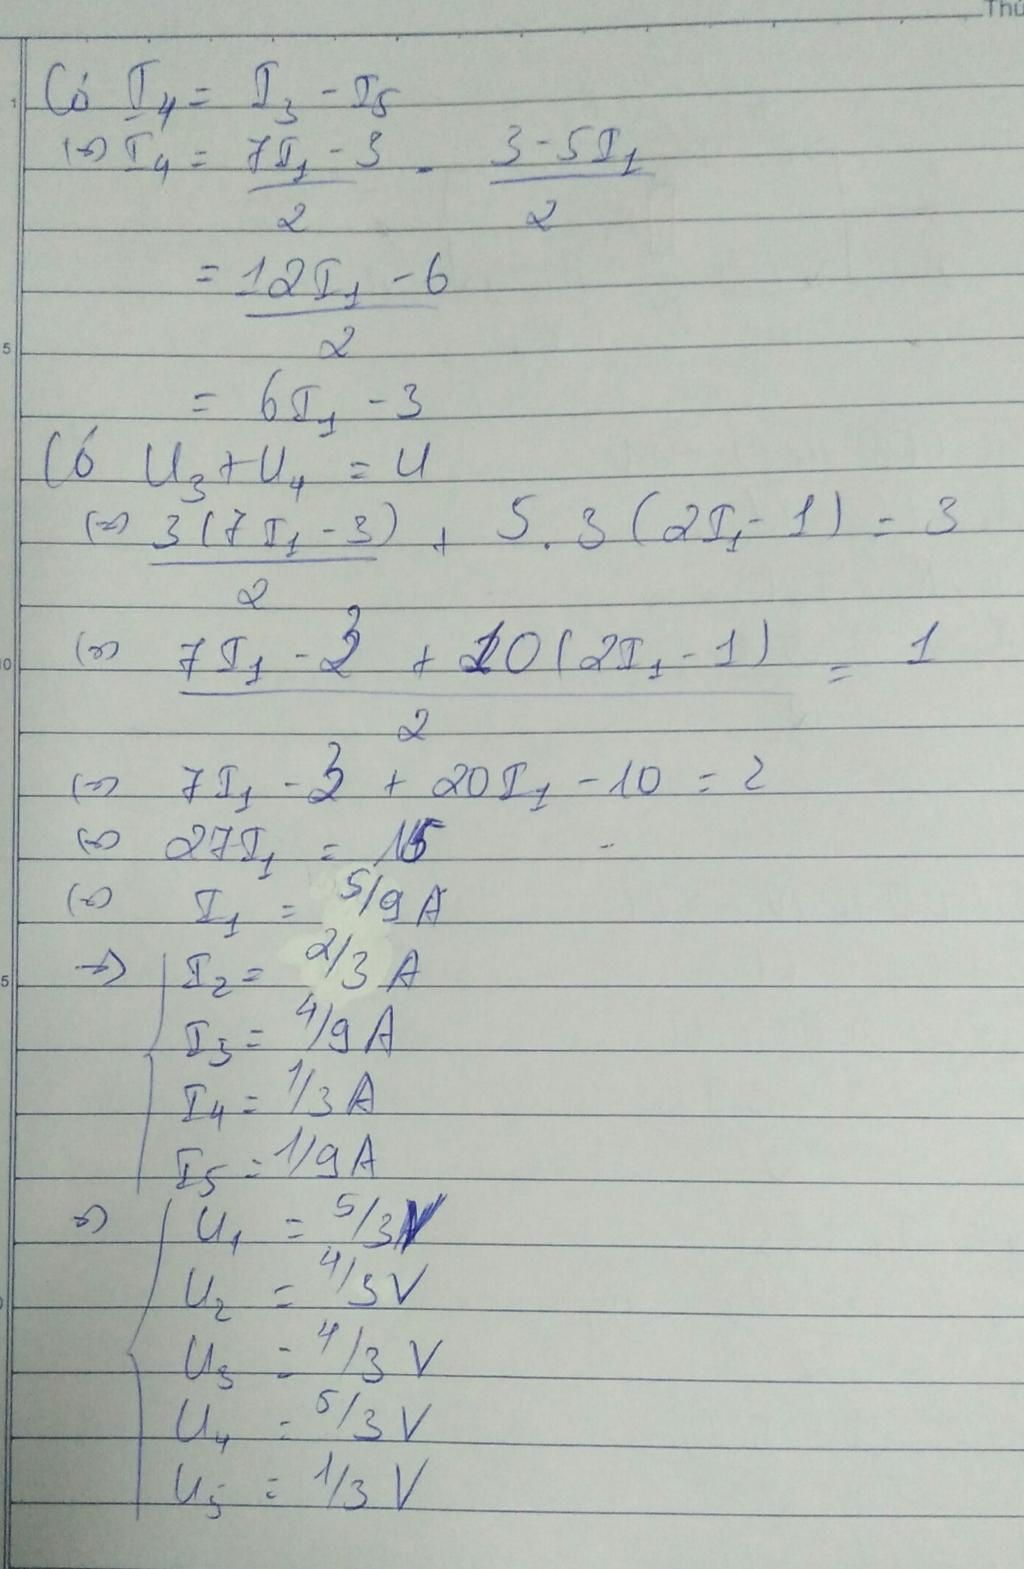 Thứ
Có I₄ = I₃ - I₅
(=) I₄ = (7I₁ - 3)/2 - (3 - 5I₁)/2
= (12I₁ - 6)/2
= 6I₁ - 3
Có U₃ + U₄ = U
(=) 3(7I₁ - 3)/2 + 5.3(2I₁ - 1) = 3
(=) (7I₁ - 3 + 10(2I₁ - 1))/2 = 1
(=) 7I₁ - 3 + 20I₁ - 10 = 2
(=) 27I₁ = 15
(=) I₁ = 5/9 A
=> I₂ = 2/3 A
I₃ = 4/9 A
I₄ = 1/3 A
I₅ = 1/9 A
=> U₁ = 5/3 V
U₂ = 4/3 V
U₃ = 4/3 V
U₄ = 5/3 V
U₅ = 1/3 V